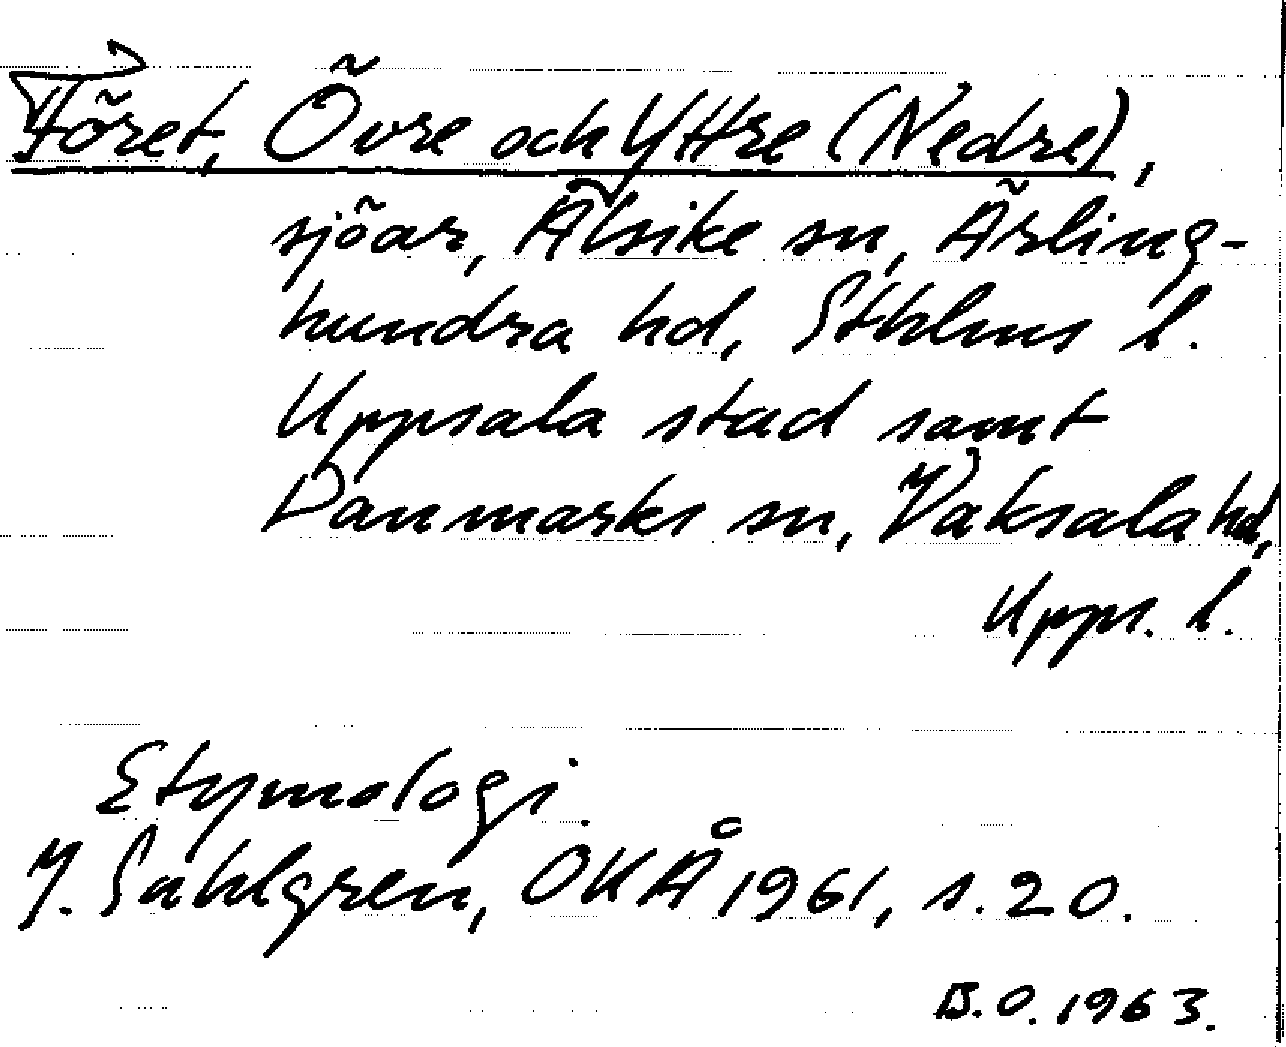 Föret, Övre och Yttre (Nedre),
sjöar, Alsike sn, Ärling-
hundra hd, Sthlms l.
Uppsala stad samt
Danmarks sn, Vaksala hd,
Upps. l.
Etymologi.
J. Sahlgren, OKÅ 1961, s. 20.
B.O. 1963.